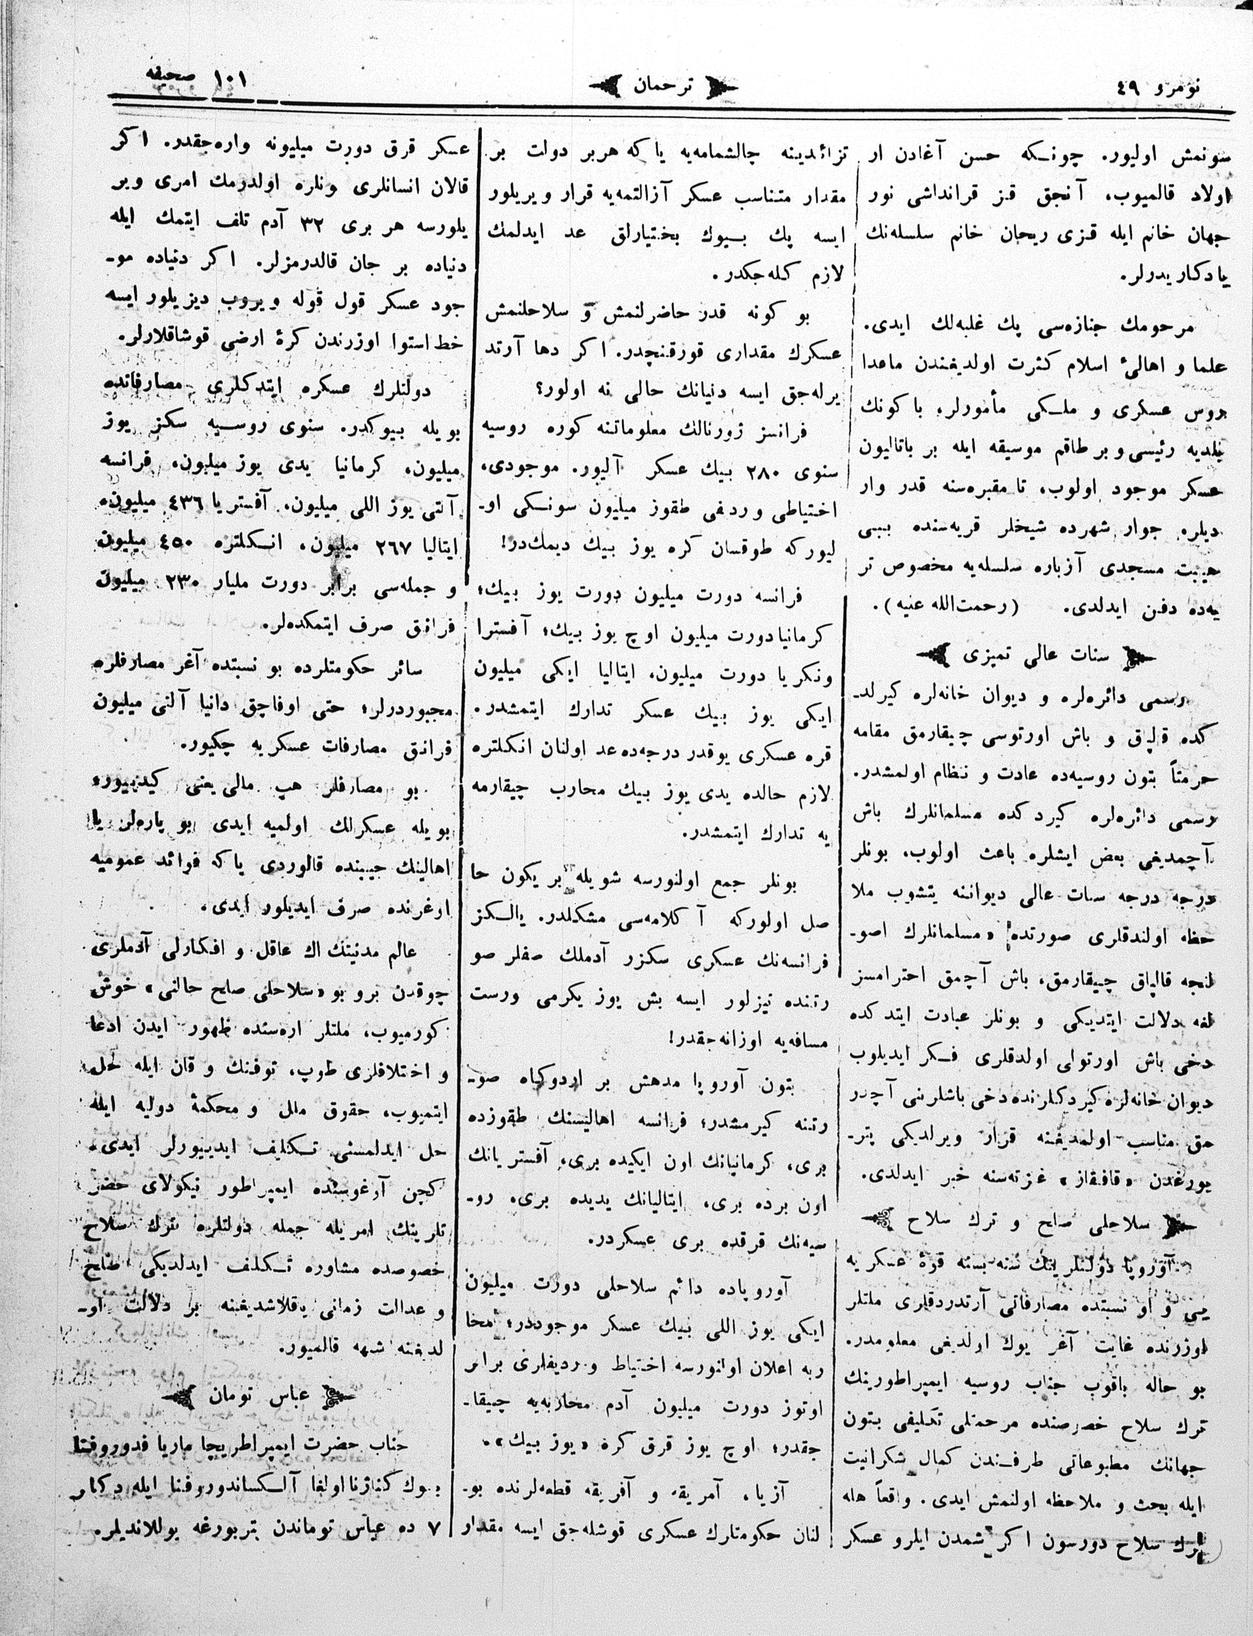 نومرو ٤٩
ترجمان
١٠١ صحیفه
سونمش اولیور. چونکه حسن آغادن ار
اولاد قالمیوب، آنجق قز قرانداشی نور
جهان خانم ایله قزی ریحان خانم سلسله‌نك
یادکاریدرلر.
مرحومك جنازه‌سی پك غلبه‌لك ایدی.
علما و اهالیٔ اسلام کثرت اولدیغندن ماعدا
روس عسکری و ملکی مأمورلر، باکونك
غلدیه رئیسی و بر طاقم موسیقه ایله بر باتالیون
عسکر موجود اولوب، تا مقبره‌سنه قدر وار
دیلر. جوار شهرده شیخلر قریه‌سنده بیبی
هیبت مسجدی آزباره سلسله‌یه مخصوص تر
به‌ده دفن ایدلدی. (رحمت‌الله عنیه).
سنات عالی تمیزی
رسمی دائره‌لره و دیوان خانه‌لره کیرلد-
کده قلپاق و باش اورتوسی چیقارمق مقامه
حرمتاً بتون روسیه‌ده عادت و نظام اولمشدر.
رسمی دائره‌لره کیردکده مسلمانلرك باش
آچمدیغی بعض ایشلره باعث اولوب، بونلر
درجه درجه سنات عالی دیواننه یتشوب ملا
حظه اولندقلری صورتده «مسلمانلرك اصو-
لنجه قالپاق چیقارمق، باش آچمق احترامسز
لغه دلالت ایتدیکی و بونلر عبادت ایتدکده
دخی باش اورتولی اولدقلری فکر ایدیلوب
دیوان خانه‌لره کیردکلرنده دخی باشلرینی آچدر
مق مناسب اولمدیغنه قرار ویرلدیکی پتر-
بورغدن «قافقاز» غزته‌سنه خبر ایدلدی.
سلاحلی صلح و ترك سلاح
آوروپا دولتلرینك سنه بسنه قوۀ عسکریه
یی و او نسبتده مصارفاتی آرتدردقلری ملتلر
اوزرنده غایت آغر یوك اولدیغی معلومدر.
بو حاله باقوب جناب روسیه ایمپراطورینك
ترك سلاح خصوصنده مرحمتلی تکلیفی بتون
جهانك مطبوعاتی طرفندن کمال شکرانیت
ایله بحث و ملاحظه اولنمش ایدی. واقعاً هله
ترك سلاح دورسون اکر شمدن ایلرو عسکر
تزائدینه چالشمامه‌یه یاکه هربر دولت بر
مقدار متناسب عسکر آزالتمه‌یه قرار ویریلور
ایسه پك بیوك بختیارلق عد ایدلمك
لازم کله‌جکدر.
بو کونه قدر حاضرلنمش و سلاحلنمش
عسکرك مقداری قورقنچدر. اکر دها آرتد
یرله‌جق ایسه دنیانك حالی نه اولور؟
فرانسز ژورنالك معلوماتنه کوره روسیه
سنوی ٢٨٠ بیك عسکر آلیور. موجودی،
اختیاطی و ردفی طقوز میلیون سونکی او-
لیورکه طوقسان کره یوز بیك دیمك‌در!
فرانسه دورت میلیون دورت یوز بیك؛
کرمانیا دورت میلیون اوچ یوز بیك؛ آفسترا
ونکریا دورت میلیون، ایتالیا ایکی میلیون
ایکی یوز بیك عسکر تدارك ایتمشدر.
قره عسکری یوقدر درجه‌ده عد اولنان انکلتره
لازم حالده یدی یوز بیك محارب چیقارمه
یه تدارك ایتمشدر.
بونلر جمع اولنورسه شویله بر یکون حا
صل اولورکه آکلامه‌سی مشکلدر. یالکز
فرانسه‌نك عسکری سکزر آدملك صفلر صو
رتنده تیزلور ایسه بش یوز یکرمی ورست
مسافه‌یه اوزانه‌جقدر!
بتون آوروپا مدهش بر اردوکاه صو-
رتنه کیرمشدر؛ فرانسه اهالیسنك طقوزده
بری، کرمانیانك اون ایکیده بری، آفستریانك
اون برده بری، ایتالیانك یدیده بری، رو-
سیه‌نك قرقده بری عسکردر.
آوروپاده دائم سلاحلی دورت میلیون
ایکی یوز اللی بیك عسکر موجوددر؛ محا
ربه اعلان اولنورسه اختیاط و ردیفلری برابر
اوتوز دورت میلیون آدم محاربه‌یه چیقا-
جقدر؛ اوچ یوز قرق کره «یوز بیك».
آزیا، آمریقه و آفریقه قطعه‌لرنده بو-
لنان حکومتلرك عسکری قوشله‌جق ایسه مقدار
عسکر قرق دورت میلیونه واره‌جقدر. اکر
قالان انسانلری ونلره اولدرمك امری ویر
یلورسه هر بری ٣٢ آدم تلف ایتمك ایله
دنیاده بر جان قالدرمزلر. اکر دنیاده مو-
جود عسکر قول قوله ویروب دیزیلور ایسه
خط استوا اوزرندن کرۀ ارضی قوشاقلارلر.
دولتلرك عسکره ایتدکلری مصارفاتده
بویله بیوکدر. سنوی روسیه سکز یوز
میلیون، کرمانیا یدی یوز میلیون، فرانسه
آلتی یوز اللی میلیون، آفستریا ٤٣٦ میلیون،
ایتالیا ٢٦٧ میلیون، انکلتره ٤٥٠ میلیون
و جمله‌سی برابر دورت ملیار ٢٣٠ میلیون
فرانق صرف ایتمکده‌لر.
سائر حکومتلرده بو نسبتده آغر مصارفلره
مجبوردرلر؛ حتی اوفاچق دانیا آلتی میلیون
فرانق مصارفات عسکریه چکیور.
بو مصارفلر هپ مالی یعنی کیدیور،
بویله عسکرلك اولمیه ایدی بو پاره‌لر یا
اهالینك جیبنده قالوردی یاکه فوائد عمومیه
اوغرنده صرف ایدیلور ایدی.
عالم مدنیتك اك عاقل و افکارلی آدملری
چوقدن برو بو «سلاحلی صلح حالنی» خوش
کورمیوب، ملتلر اره‌سنده ظهور ایدن ادعا
و اختلافلری طوپ، توفنك و قان ایله حل
ایتمیوب، حقوق ملل و محکمۀ دولیه ایله
حل ایدلمسنی تکلیف ایدییورلر ایدی.
کچن آوغوستده ایمپراطور نیکولای حضر
تلرینك امریله جمله دولتلره ترك سلاح
خصوصده مشاوره تکلیف ایدلدیکی صلح
و عدالت زمانی یاقلاشدیغینه بر دلالت او-
لدیغنه شبهه قالمیور.
عباس تومان
جناب حضرت ایمپراطریچا ماریا فدوروفنا
بیوك کنازنا اولغا آلکساندوروفنا ایله دکابر
٧ ده عباس توماندن پتربورغه یوللاندیلر.